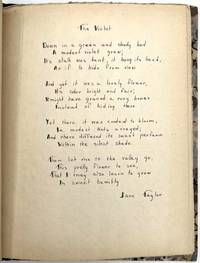 The Violet
Down in a green and shady bed
A modest violet grew;
Its stalk was bent, it hung its head,
As if to hide from view
And yet it was a lovely flower,
Its color bright and fair;
It might have graced a rosy bower
Instead of hiding there
Yet there it was content to bloom,
In modest tints arrayed;
And there diffused its sweet perfume
Within the silent shade.
Then let me to the valley go,
This pretty flower to see,
That I may also learn to grow
In sweet humility
Jane Taylor